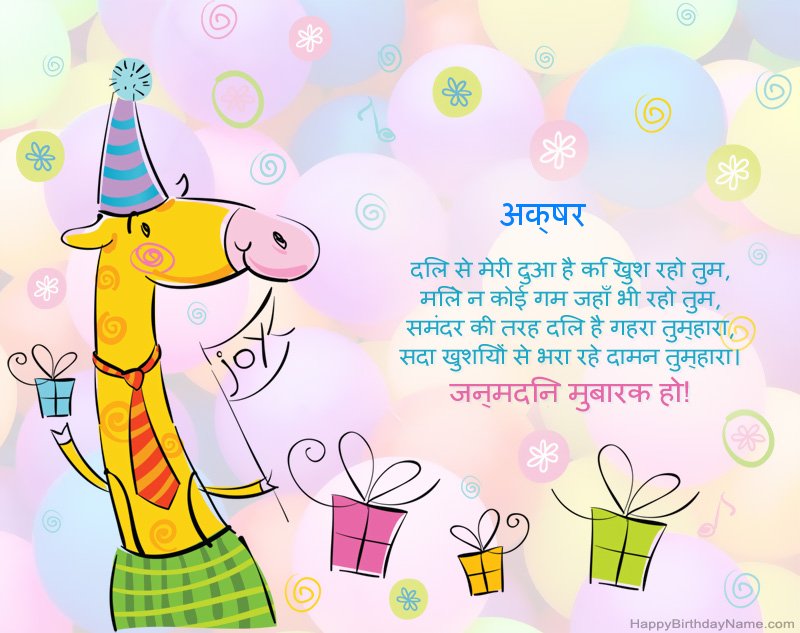 अक्षर
दिल से मेरी दुआ है कि खुश रहो तुम,
मिले न कोई गम जहाँ भी रहो तुम,
समंदर की तरह दिल है गहरा तुम्हारा,
सदा खुशियों से भरा रहे दामन तुम्हारा।
जन्मदिन मुबारक हो!
joy
HappyBirthdayName.com